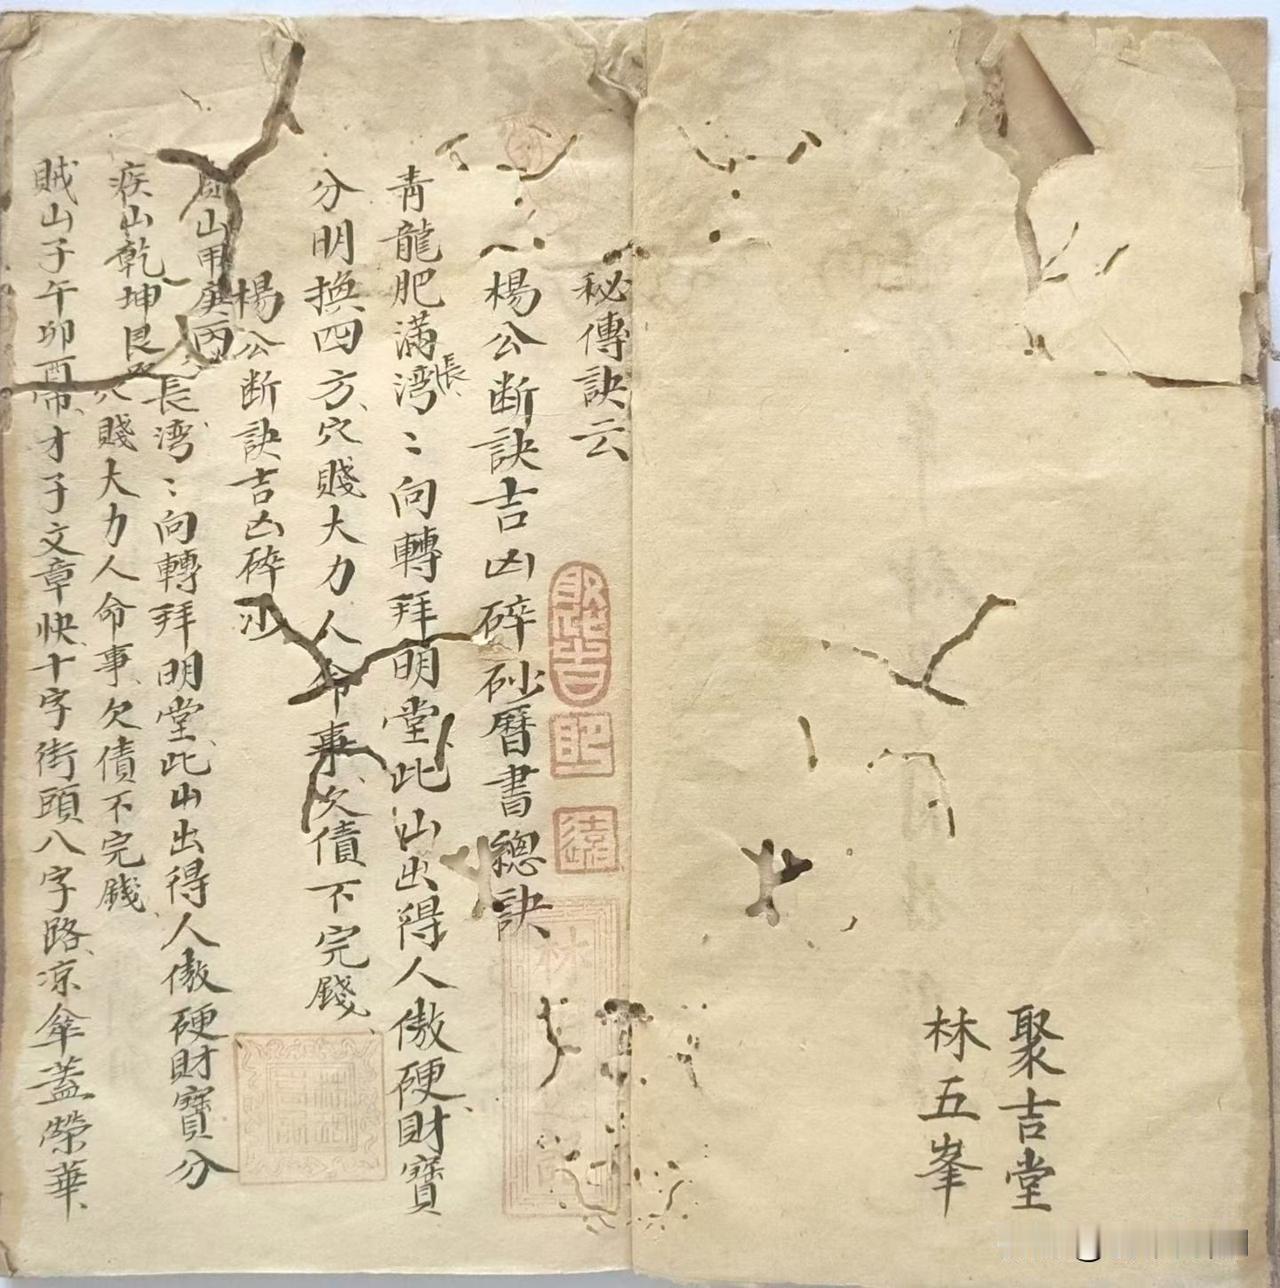 聚吉堂
林五峯
秘傳訣云
楊公断訣吉凶碎砂曆書總訣
青龍肥滿湾〻向轉拜明堂此山出得人傲硬財寶
張
分明換四方穴賤大力人命事欠債不完錢
楊公断訣吉凶碎沙
山甲庚丙長湾〻向轉拜明堂此山出得人傲硬財寶分
疾山乾坤艮賤大力人命事欠債不完錢
賊山子午卯酉才子文章快十字街頭八字路凉傘蓋榮華
聚吉
林